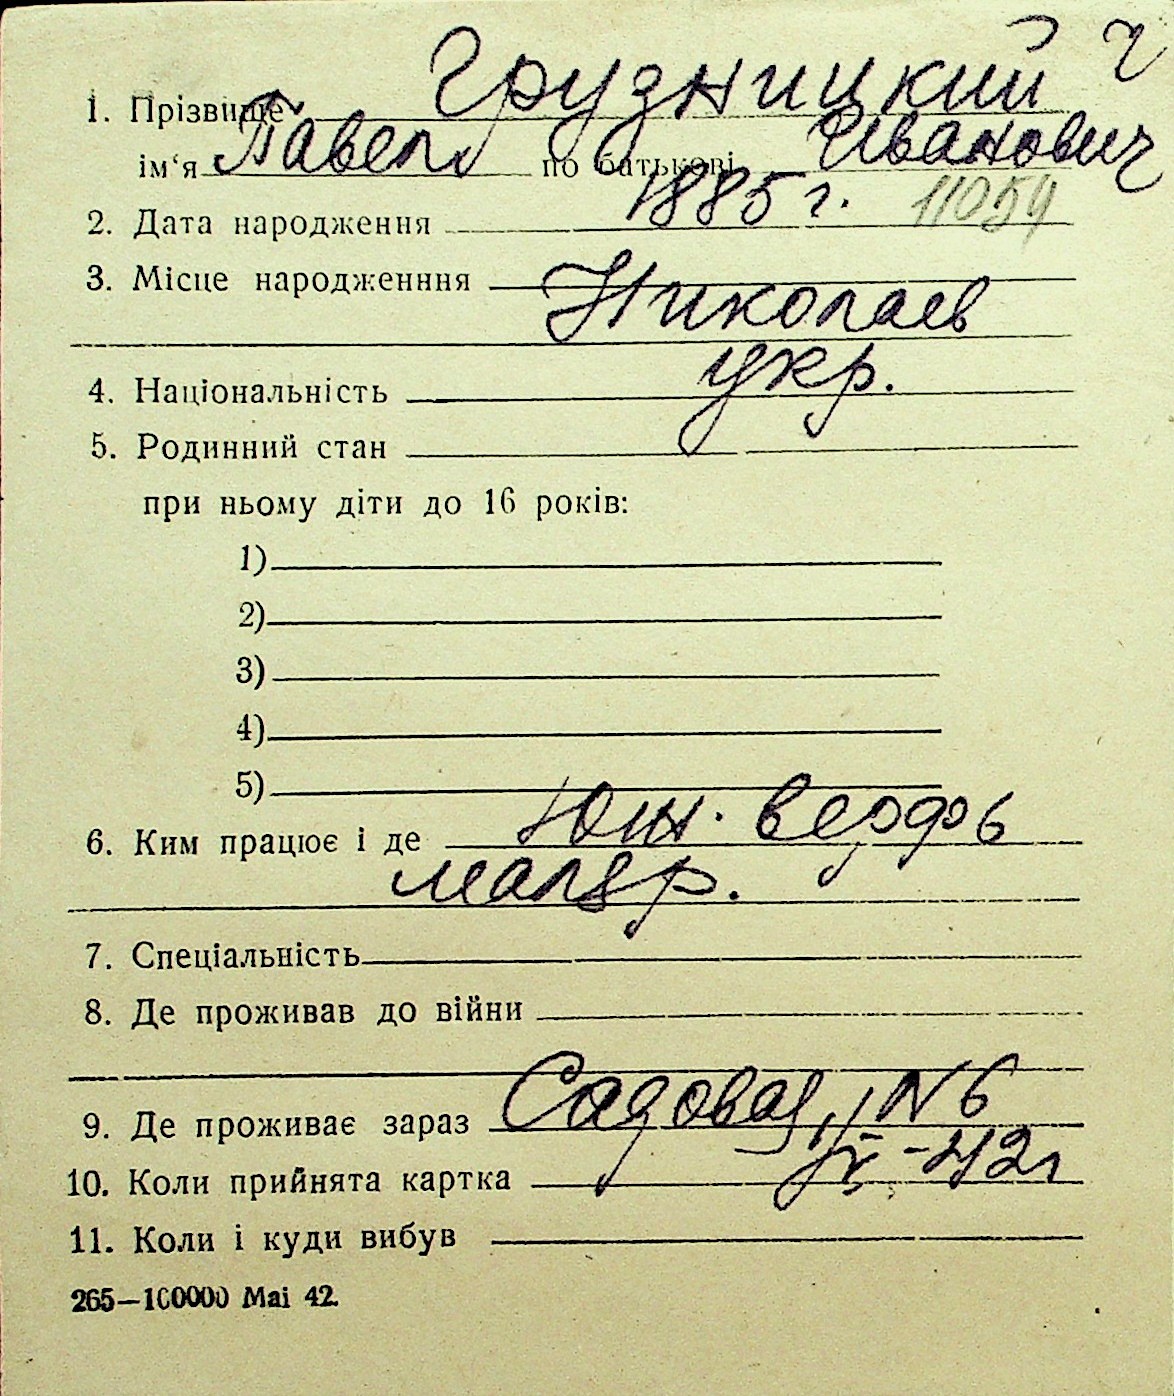 ч
1. Прізвище Грузницкий
ім‘я Павел по батькові Иванович
2. Дата народження 1885 г. 11054
3. Місце народженння Николаев
4. Національність укр.
5. Родинний стан
при ньому діти до 16 років:
1)
2)
3)
4)
5)
6. Ким працює і де Юж. верфь
маляр.
7. Спеціальність
8. Де проживав до війни
9. Де проживає зараз Садовая, N 6
10. Коли прийнята картка -42г
11. Коли і куди вибув
265—100000 Mai 42.